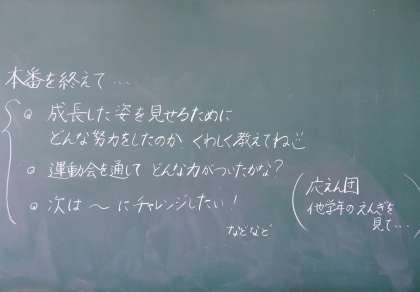 本番を終えて…
。成長した姿を見せるために
どんな努力をしたのか くわしく教えてね
。運動会を通して どんな力がついたかな?
。次は 〜 にチャレンジしたい!
などなど
(応えん団
他学年のえんぎを
見て…)